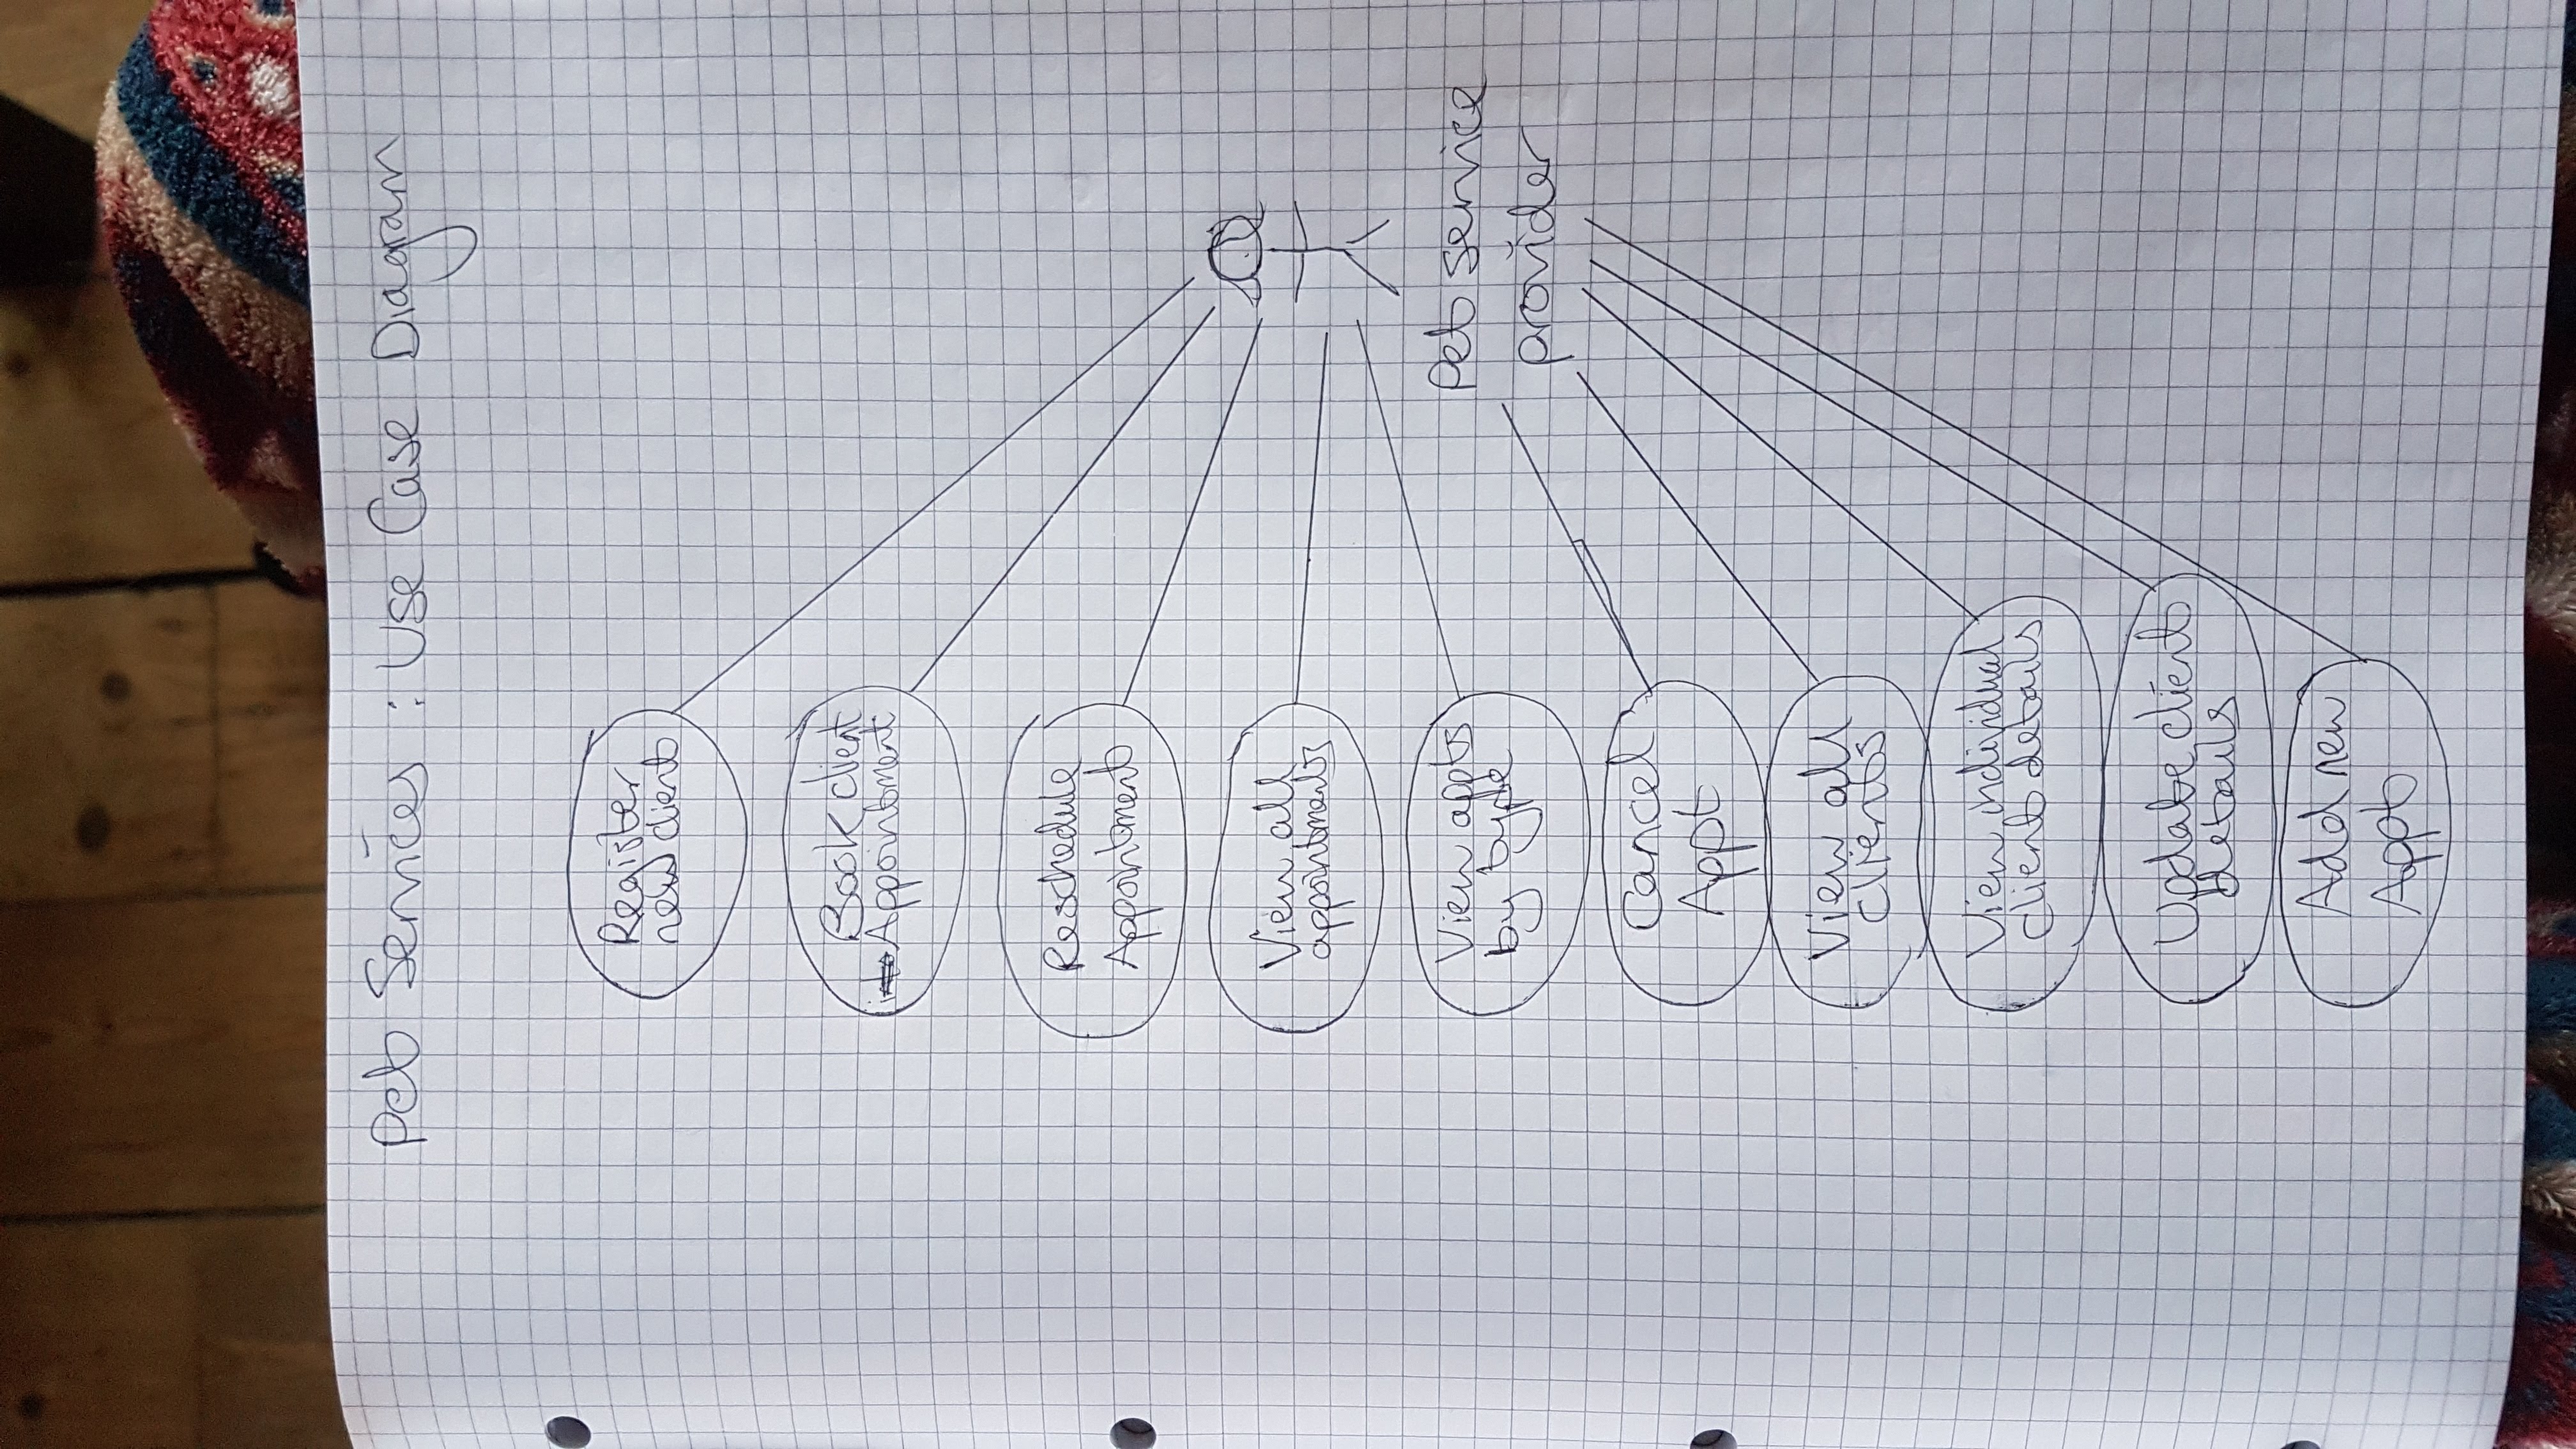 Pet Services : Use Case Diagram
Register
new client
Book client
Appointment
Reschedule
Appointment
View all
appointments
View appts
by type
Pet service
provider
Cancel
Appt
View all
clients
View individual
client details
Update client
details
Add new
Appt